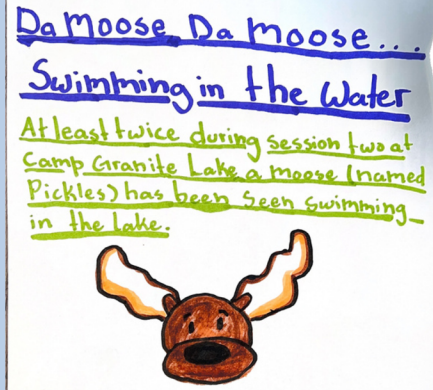 Da Moose Da Moose...
Swimming in the Water
At least twice during session two at
Camp Granite Lake a moose (named
Pickles) has been seen swimming
in the lake.